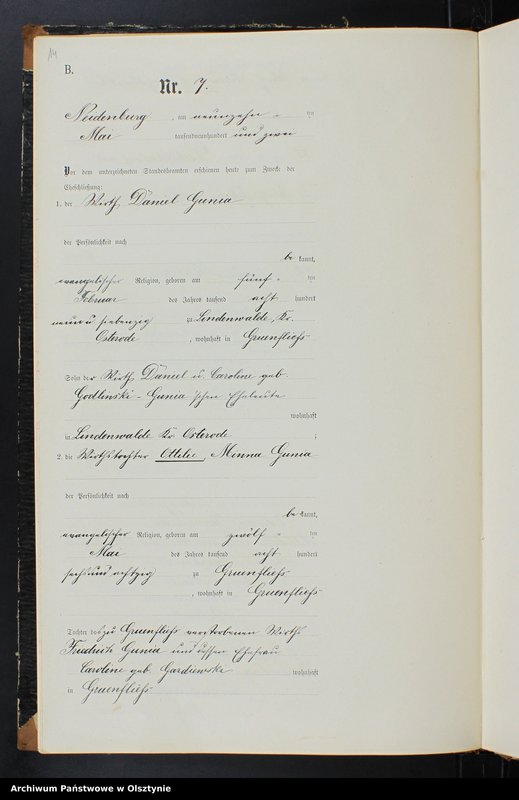 14
B.
Nr. 7.
Neidenburg, am neunzehn ten
Mai tausendneunhundert und zwei
Vor dem unterzeichneten Standesbeamten erschienen heute zum Zwecke der
Eheschließung:
1. der Wirth Daniel Gunia
der Persönlichkeit nach
be kannt,
evangelischer Religion, geboren am fünf ten
Februar des Jahres tausend acht hundert
neun u. siebenzig zu Lindenwalde, Kr.
Osterode, wohnhaft in Gruenfließ
Sohn der Wirth Daniel u. Caroline geb.
Godlinski-Gunia'schen Eheleute
wohnhaft
in Lindenwalde Kr. Osterode;
2. die Wirthstochter Ottilie, Minna Gunia
der Persönlichkeit nach
be kannt,
evangelischer Religion, geboren am zwölf ten
Mai des Jahres tausend acht hundert
sechs und achtzig zu Gruenfließ
, wohnhaft in Gruenfließ
Tochter des zu Gruenfließ verstorbenen Wirths
Friedrich Gunia und dessen Ehefrau
Caroline geb. Gardiewski wohnhaft
in Gruenfließ
Archiwum Państwowe w Olsztynie